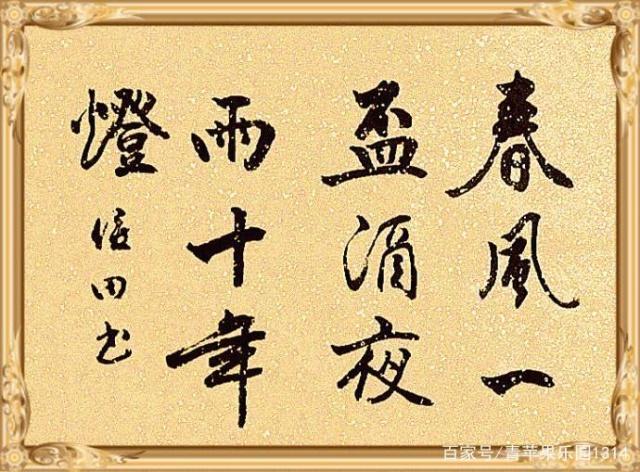 春風一
盃酒夜
雨十年
燈
田书
百家号/青苹果乐园1314